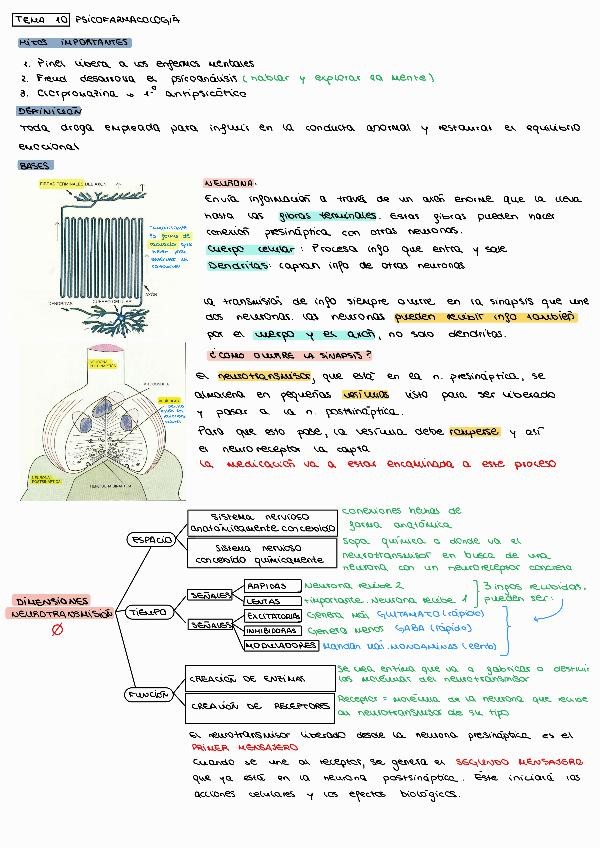 TEMA 10 PSICOFARMACOLOGIA
HITOS IMPORTANTES
1. Pinel libera a los enfermos mentales
2. Freud desarrolla el psicoanálisis (hablar y explorar la mente)
3. Clorpromazina → 1º antipsicótico
DEFINICIÓN
Toda droga empleada para influir en la conducta anormal y restaurar el equilibrio
emocional
BASES
FIBRAS TERMINALES DEL AXON
AXON
DENDRITAS
CUERPO CELULAR
NEURONA:
Envía información a través de un axón enorme que la lleva
hasta las fibras terminales. Estas fibras pueden hacer
conexión presináptica con otras neuronas.
Cuerpo celular: Procesa info que entra y sale
Dendritas: captan info de otras neuronas
La transmisión de info siempre ocurre en la sinapsis que une
dos neuronas. Las neuronas pueden recibir info también
por el cuerpo y el axón, no solo dendritas.
¿COMO OCURRE LA SINAPSIS?
El neurotransmisor, que está en la n. presináptica, se
almacena en pequeñas vesículas listo para ser liberado
y pasar a la n. postsináptica.
Para que esto pase, la vesícula debe romperse y así
el neuroreceptor la capta
La medicación va a estar encaminada a este proceso
DIMENSIONES
NEUROTRANSMISIÓN
ESPACIO
Sistema nervioso
anatómicamente concebido
conexiones hechas de
forma anatómica
Sistema nervioso
concebido químicamente
Sopa química a donde va el
neurotransmisor en busca de una
neurona con un neuroreceptor concreto
TIEMPO
SEÑALES
RAPIDAS
Neurona recibe 2
LENTAS
+importante. Neurona recibe 1
3 inpos recibidos.
pueden ser:
SEÑALES
EXCITATORIAS
Genera más GLUTAMATO (rápido)
INHIBIDORAS
Genera menos GABA (rápido)
MODULADORES
Mandan más. MONOAMINAS (lento)
FUNCIÓN
CREACIÓN DE ENZIMAS
Se crea enzima que va a fabricar o destruir
las moléculas del neurotransmisor
CREACIÓN DE RECEPTORES
Receptor = molécula de la neurona que recibe
al neurotransmisor de su tipo
El neurotransmisor liberado desde la neurona presináptica es el
PRIMER MENSAJERO
Cuando se une al receptor, se genera el SEGUNDO MENSAJERO
que ya está en la neurona postsináptica. Este iniciará las
acciones celulares y los efectos biológicos.